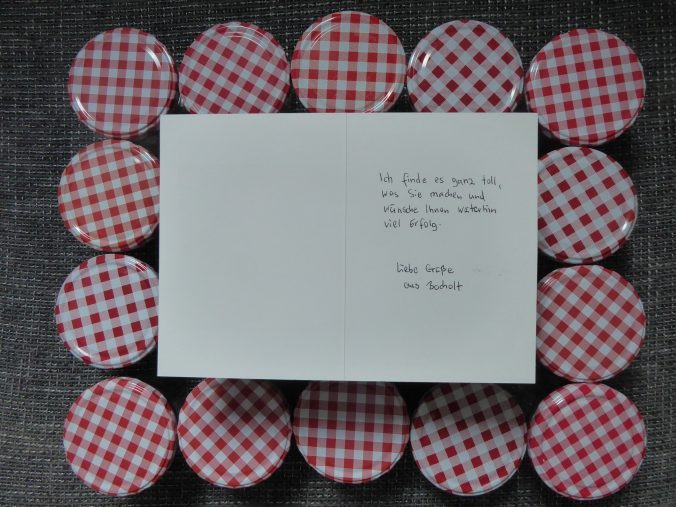 Ich finde es ganz toll,
was Sie machen und
wünsche Ihnen weiterhin
viel Erfolg.
Liebe Grüße
aus Bocholt